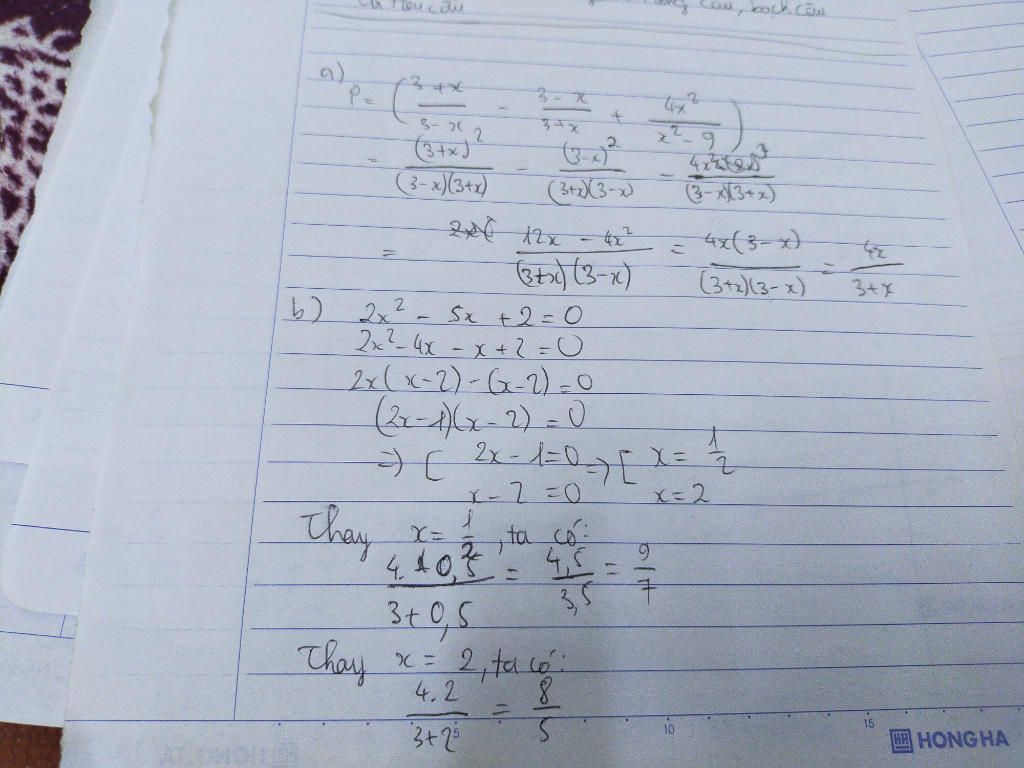 cầu, bạch cầu
a) P = ( \frac{3+x}{3-x} - \frac{3-x}{3+x} + \frac{4x^2}{x^2-9} )
= \frac{(3+x)^2}{(3-x)(3+x)} - \frac{(3-x)^2}{(3+x)(3-x)} - \frac{4x^2}{(3-x)(3+x)}
= \frac{12x - 4x^2}{(3+x)(3-x)} = \frac{4x(3-x)}{(3+x)(3-x)} = \frac{4x}{3+x}
b) 2x^2 - 5x + 2 = 0
2x^2 - 4x - x + 2 = 0
2x(x-2) - (x-2) = 0
(2x-1)(x-2) = 0
=> [ 2x - 1 = 0 => [ x = \frac{1}{2}
x - 2 = 0 x = 2
Thay x = \frac{1}{2}, ta có:
\frac{4.0,5}{3+0,5} = \frac{4,5}{3,5} = \frac{9}{7}
Thay x = 2, ta có:
\frac{4.2}{3+2} = \frac{8}{5}
5 10 15
HH HONG HA
HONG HA